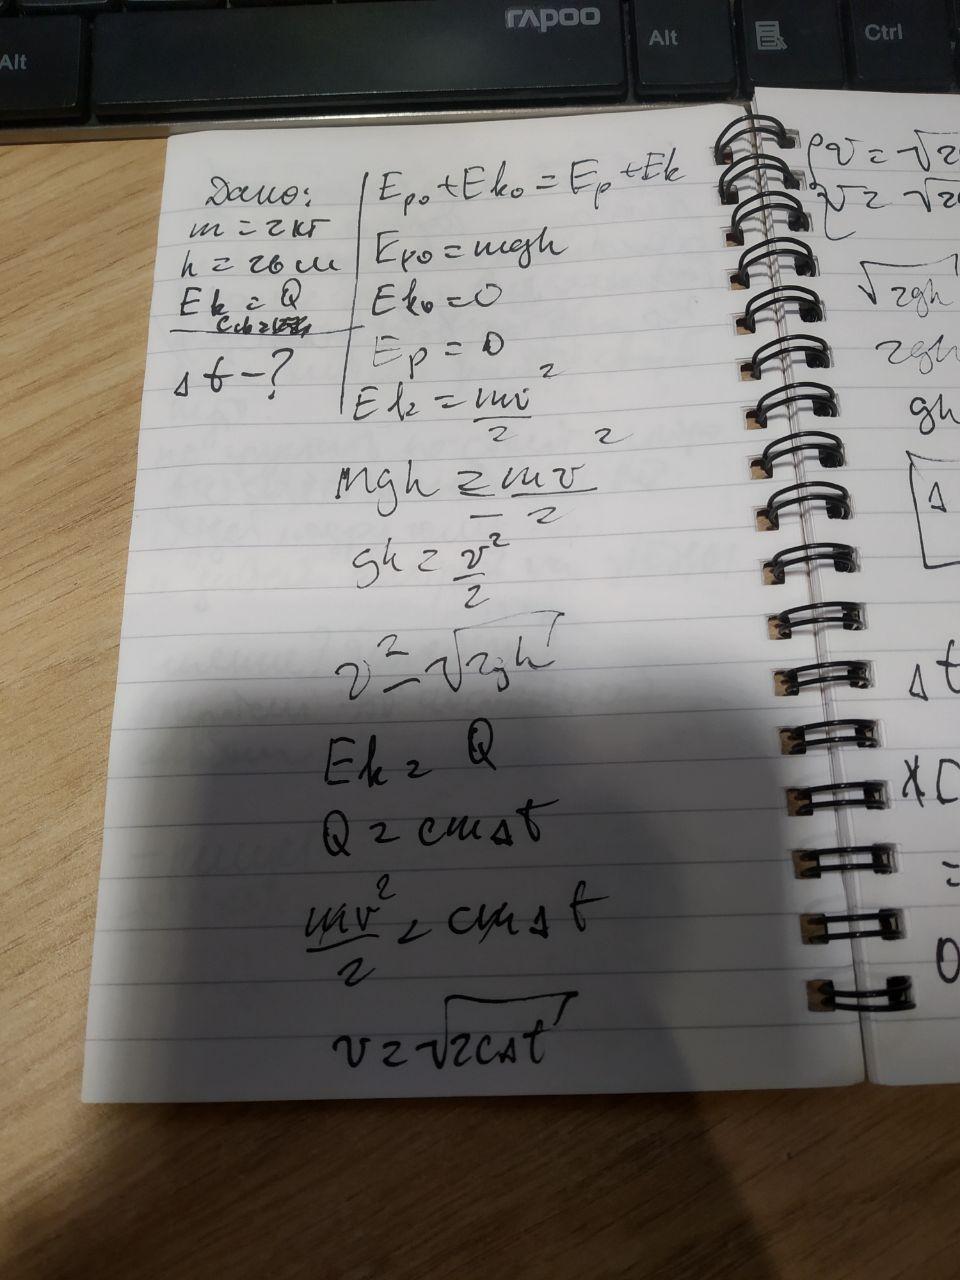 rapoo
Alt
Alt
Ctrl
Дано:
m = 2кг
h = 26м
Ek = Q
Δt - ?
Ep₀ + Ek₀ = Ep + Ek
Ep₀ = mgh
Ek₀ = 0
Ep = 0
Ek = mv²/2
mgh = mv²/2
gh = v²/2
v² = √2gh
Ek = Q
Q = cmΔt
mv²/2 = cmΔt
v = √2cΔt
v = √2
v = √2
√2gh
2gh
gh
Δ
Δt
=
0